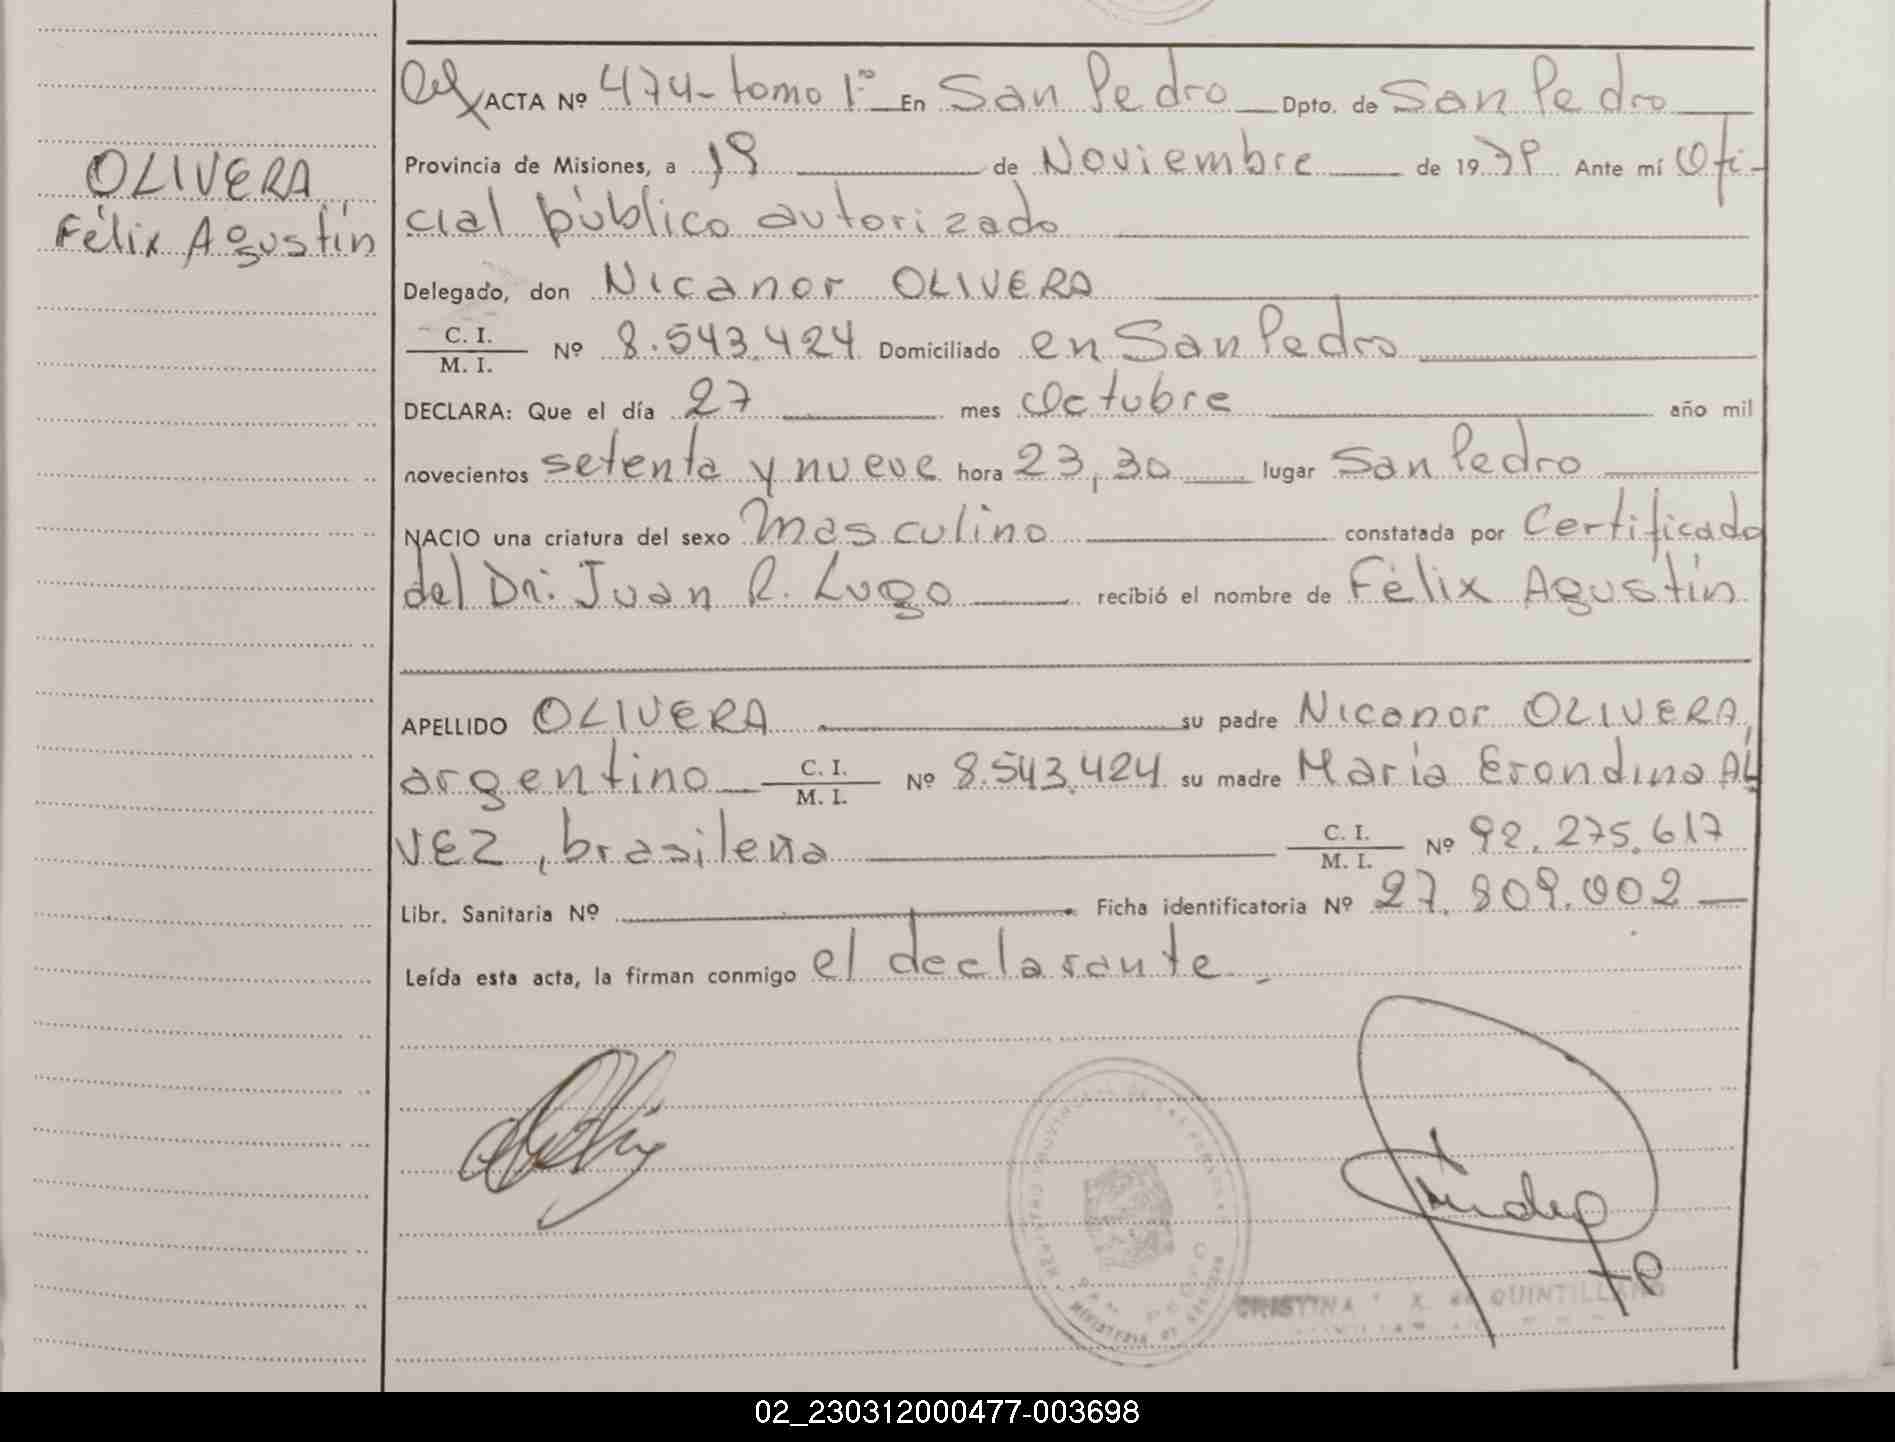 ACTA Nº 474-tomo 1º En San Pedro Dpto. de San Pedro
Provincia de Misiones, a 19 de Noviembre de 1979 Ante mí Ofi-
OLIVERA
Félix Agustín
cial público autorizado
Delegado, don Nicanor OLIVERA
C. I.
M. I. Nº 8.543.424 Domiciliado en San Pedro
DECLARA: Que el día 27 mes Octubre año mil
novecientos setenta y nueve hora 23,30 lugar San Pedro
NACIO una criatura del sexo Masculino constatada por Certificado
del Dr: Juan R. Lugo recibió el nombre de Félix Agustín
APELLIDO OLIVERA su padre Nicanor OLIVERA,
argentino C. I. M. I. Nº 8.543.424 su madre María Erondina AL
VEZ, brasileña C. I. M. I. Nº 92.275.617
Libr. Sanitaria Nº Ficha identificatoria Nº 27.809.002
Leída esta acta, la firman conmigo el declarante.
CRISTINA K. de QUINTILLANO
02_230312000477-003698